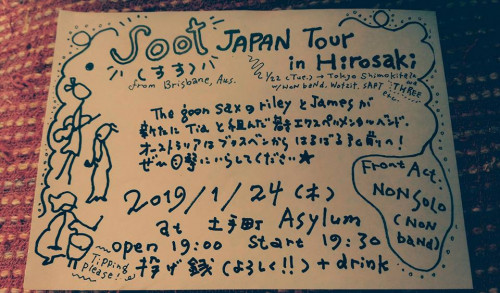 Soot JAPAN Tour
(すす)
in Hirosaki
from Brisbane, Aus.
1/22 (Tue.) → Tokyo Shimokitazawa THREE
w/ NON band. Wotzit. SAPT etc.
The goon saxのrileyとJamesが
新たにTiaと組んだ若手エクスペリメンタルバンド。
オーストラリアはブリスベンからはるばる弘前へ!
ぜ〜目撃にいらしてください★
2019/1/24(木)
at 土手町 Asylum
open 19:00 Start 19:30
投げ銭(よろしく!!)+drink
Tipping
please!
Front Act:
NON SOLO
(NON
band)